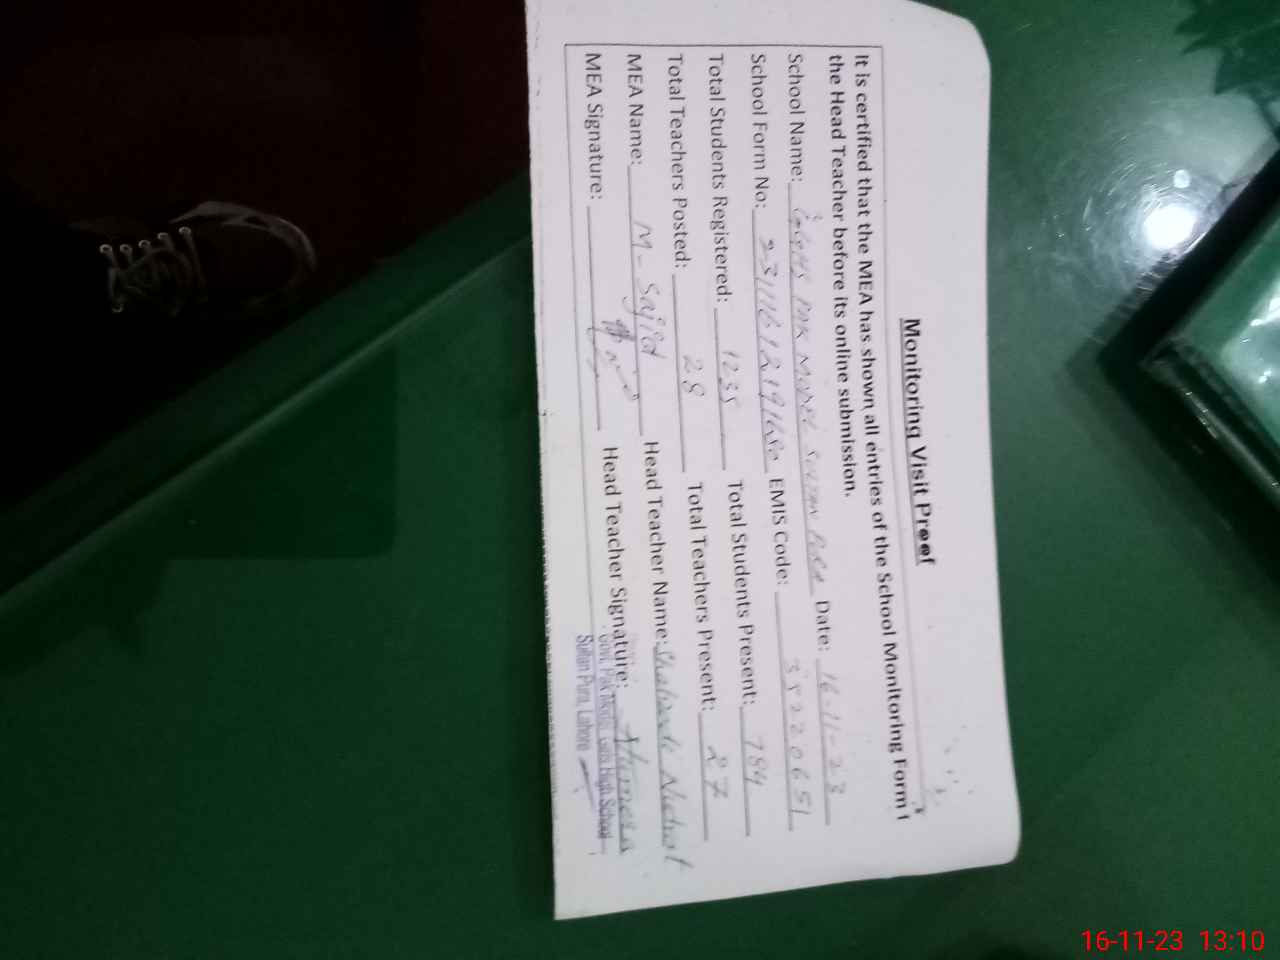 Monitoring Visit Proof
It is certified that the MEA has shown all entries of the School Monitoring Form to
the Head Teacher before its online submission.
School Name: GGHS PAK MODEL SULTAN PURA Date: 16-11-23
School Form No: EMIS Code:
Total Students Registered: 1235 Total Students Present: 784
Total Teachers Posted: 28 Total Teachers Present: 27
MEA Name: M- Sajid Head Teacher Name:
MEA Signature: Head Teacher Signature:
Govt. Pak Model Girls High School
Sultan Pura, Lahore
16-11-23 13:10